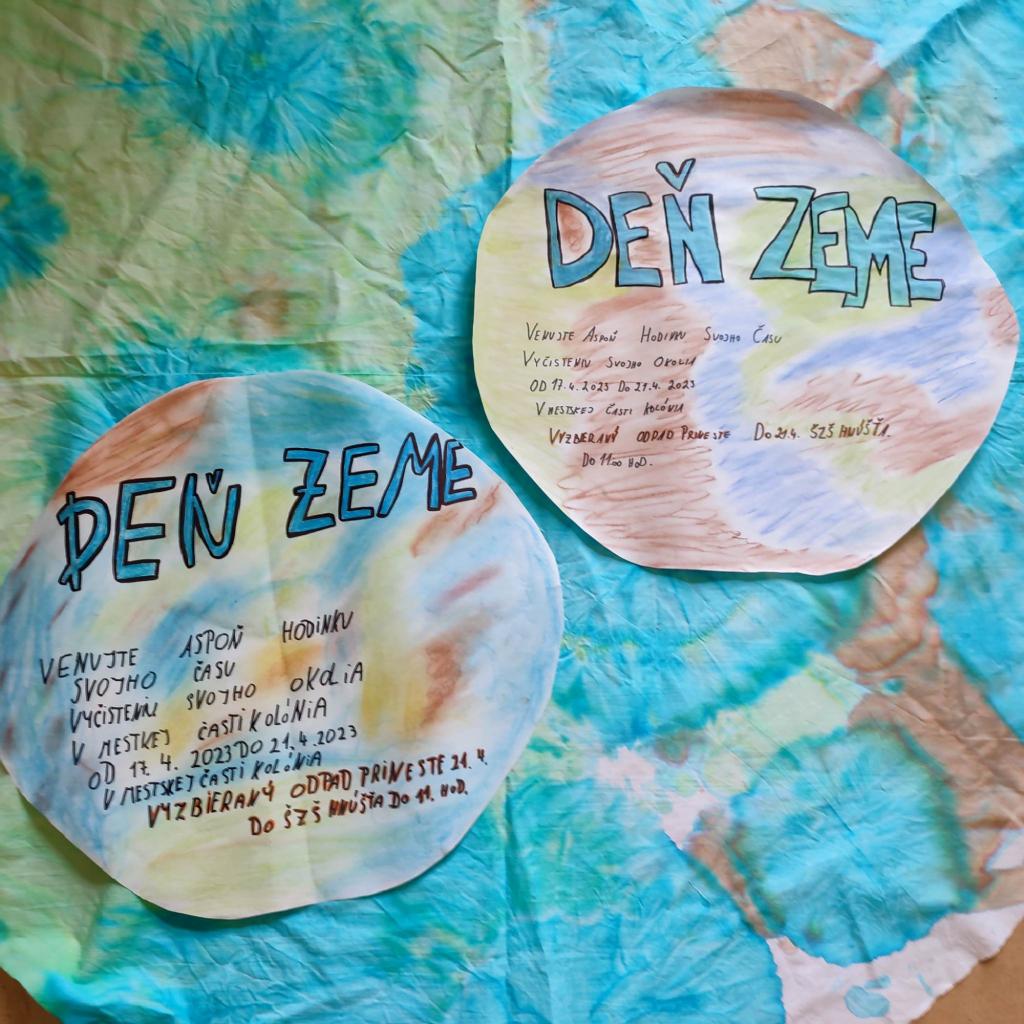 DEŇ ZEME
VENUJTE ASPOŇ HODINKU
SVOJHO ČASU
VYČISTENIU SVOJHO OKOLIA
V MESTKEJ ČASTI KOLÓNIA
OD 17. 4. 2023 DO 21. 4. 2023
V MESTSKEJ ČASTI KOLÓNIA
VYZBIERANÝ ODPAD PRINESTE 21. 4.
DO ŠZŠ HNÚŠŤA DO 11. HOD.
DEŇ ZEME
VENUJTE ASPOŇ HODINKU SVOJHO ČASU
VYČISTENIU SVOJHO OKOLIA
OD 17. 4. 2023 DO 21. 4. 2023
V MESTSKEJ ČASTI KOLÓNIA
VYZBIERANÝ ODPAD PRINESTE DO 21.4. ŠZŠ HNÚŠŤA.
DO 11 00 HOD.